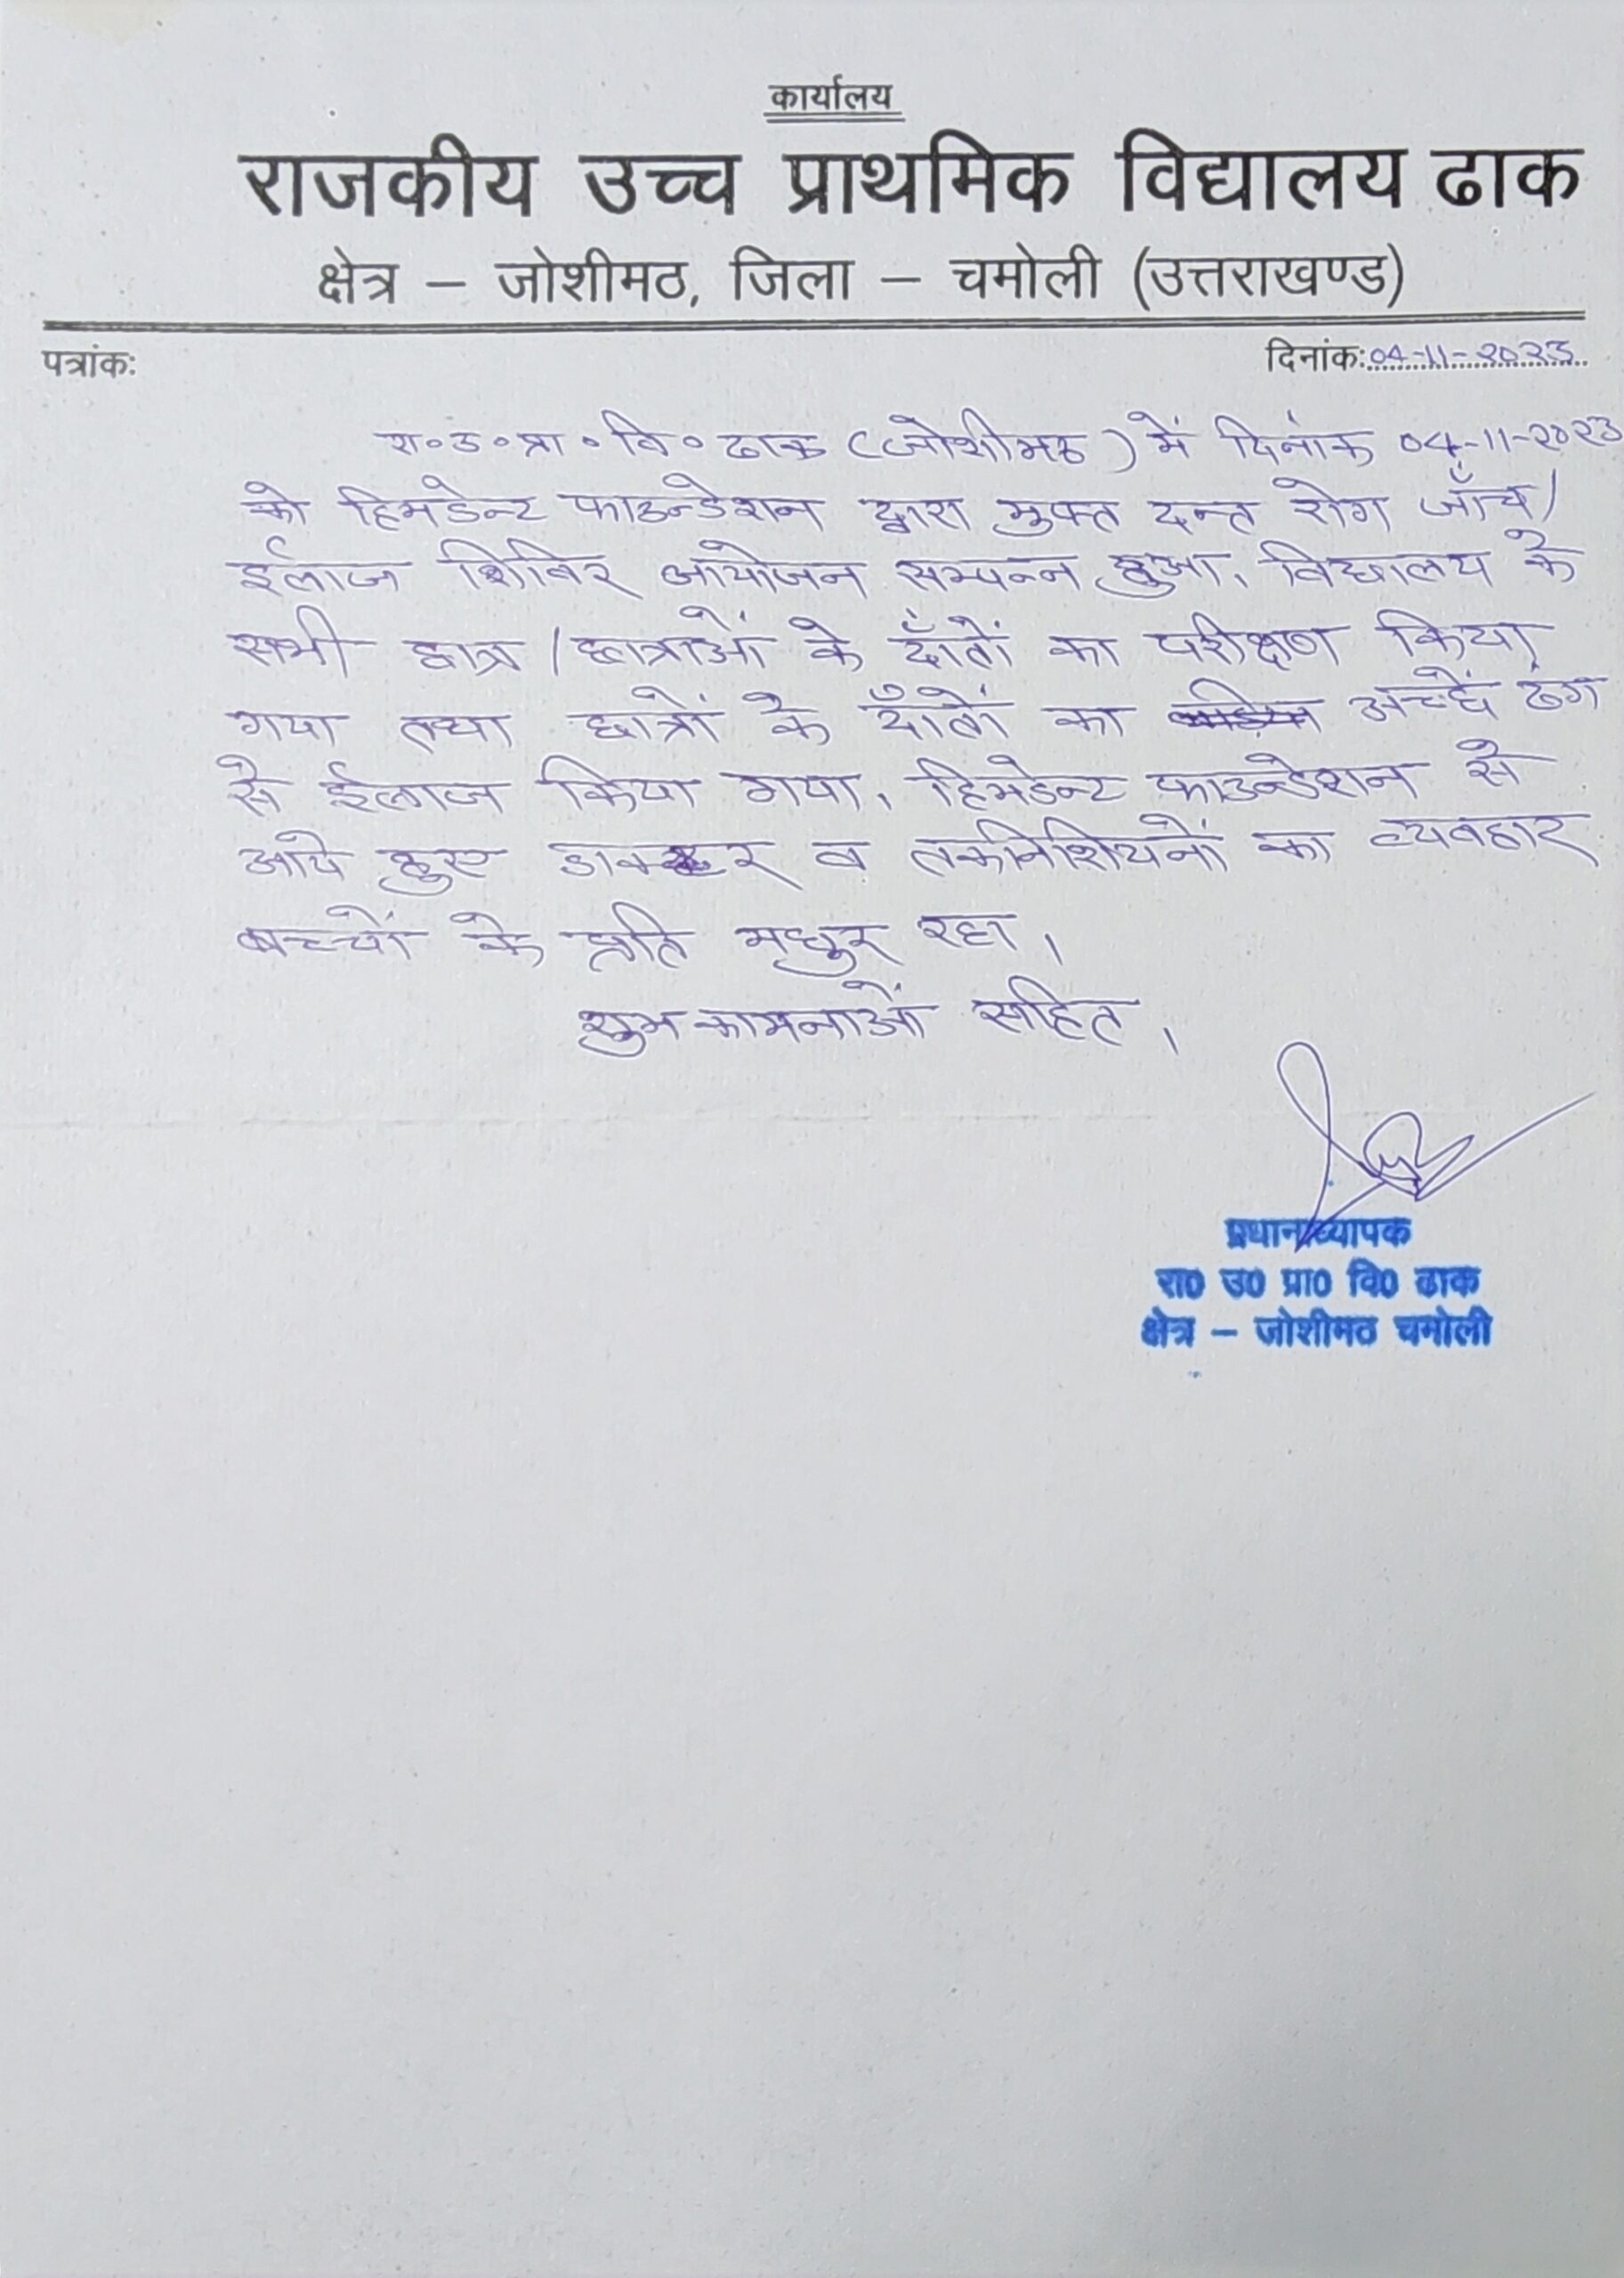 कार्यालय
राजकीय उच्च प्राथमिक विद्यालय ढाक
क्षेत्र – जोशीमठ, जिला – चमोली (उत्तराखण्ड)
पत्रांक:
दिनांक: 04-11-2023
रा०उ०प्रा०वि० ढाक (जोशीमठ) में दिनांक 04-11-2023
को हिमडेन्ट फाउन्डेशन द्वारा मुक्त दन्त रोग जाँच/
ईलाज शिविर आयोजन सम्पन्न हुआ। विद्यालय के
सभी छात्र/छात्राओं के दाँतों का परीक्षण किया
गया तथा छात्रों के दाँतों का अच्छें ढंग
से ईलाज किया गया। हिमडेन्ट फाउन्डेशन से
आये हुए डाक्टर व तकनिशियनों का व्यवहार
बच्चों के प्रति मधुर रहा।
शुभकामनाओं सहित।
प्रधानाध्यापक
रा0 उ0 प्रा0 वि0 ढाक
क्षेत्र – जोशीमठ चमोली